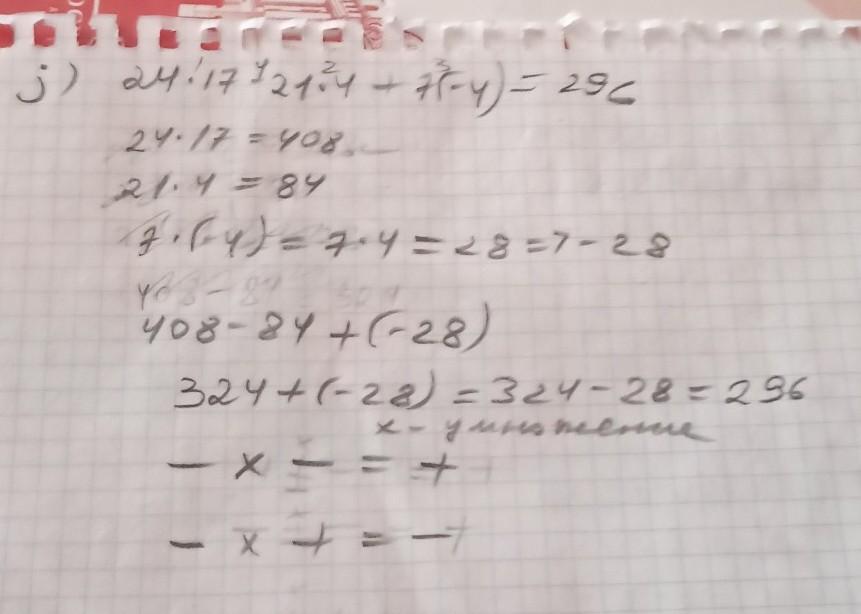 j) 24·17 - 21·4 + 7(-4) = 296
24·17 = 408
21·4 = 84
7·(-4) = 7·4 = 28 => -28
408-84
408-84+(-28)
324+(-28) = 324-28 = 296
x - умножение
- x - = +
- x + = -